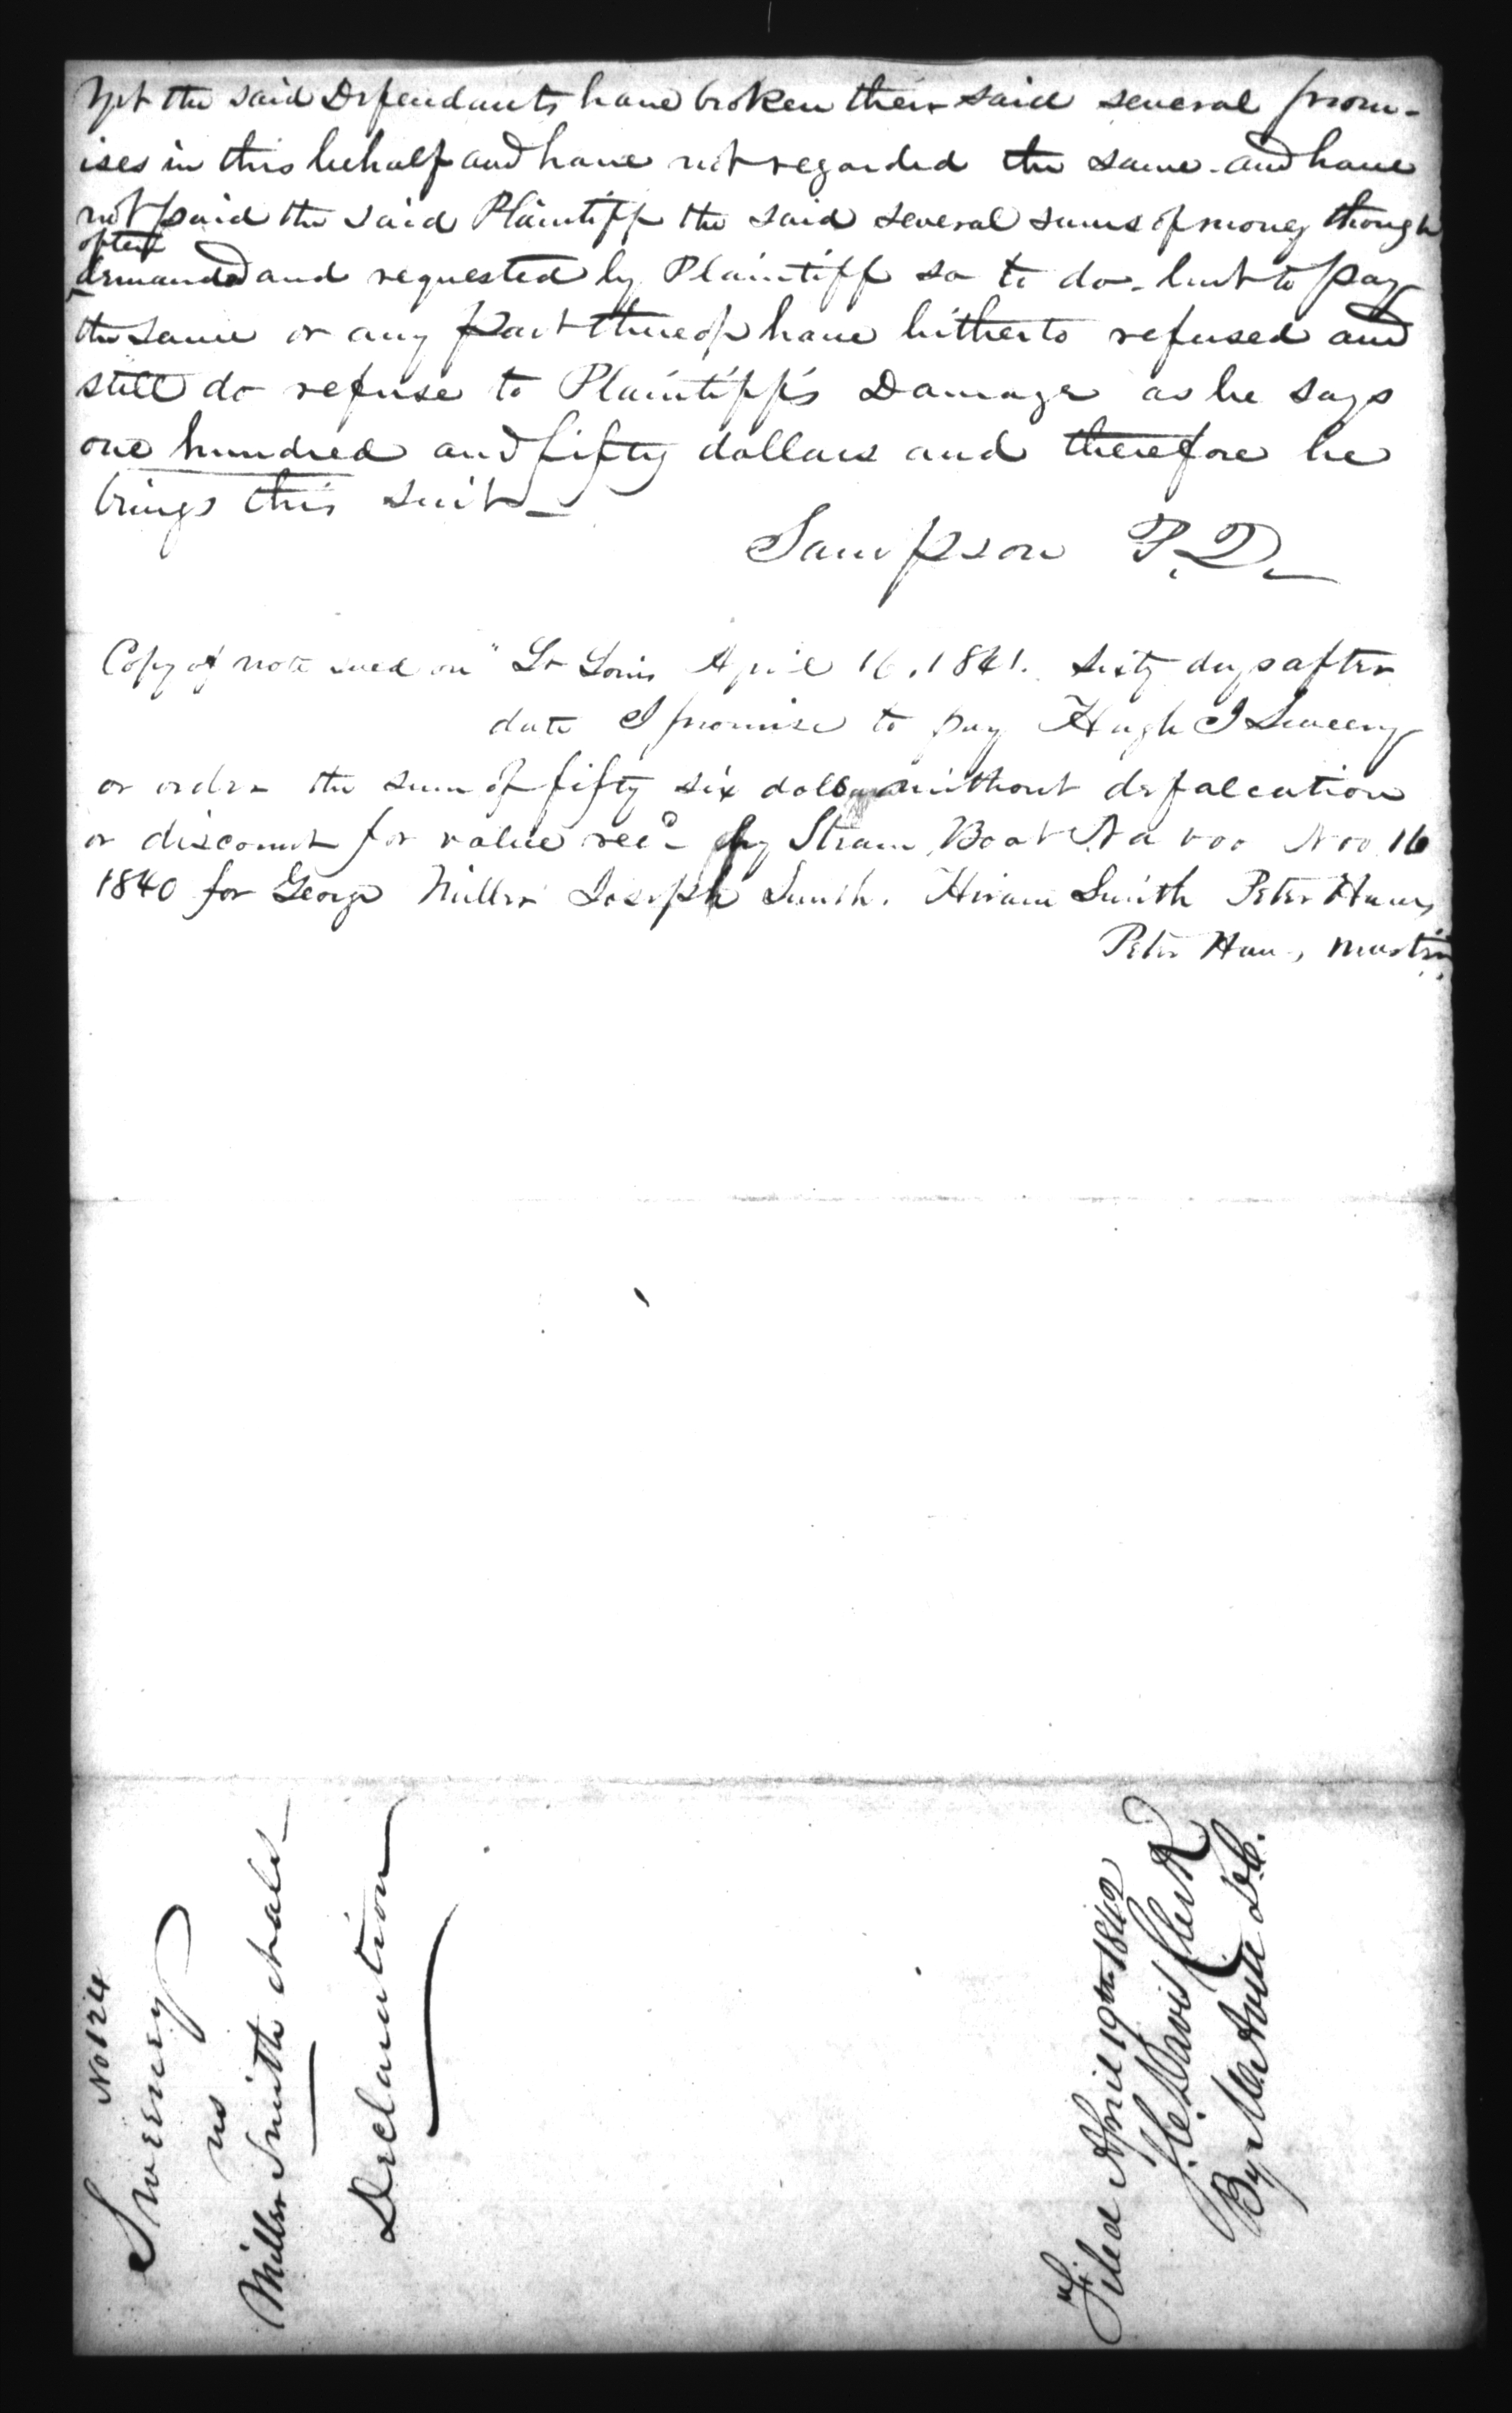 Yet the said Defendants have broken their said several prom-
ises in this behalf and have not regarded the same and have
not paid the said Plaintiff the said several sums of money though
often
demanded and requested by Plaintiff so to do - but to pay
the same or any part thereof have hitherto refused and
still do refuse to Plaintiff's Damage as he says
one hundred and fifty dollars and therefore he
brings this suit -
Sampson P. Q.
Copy of note sued on " St Louis April 16, 1841. Sixty days after
date I promise to pay Hugh I Sweeny
or order the sum of fifty six dollars without defalcation
or discount for value recd by Steam Boat Na voo Nov 16
1840 for George Miller Joseph Smith. Hiram Smith Peter Haws
Peter Haws, master
No 124
Sweeney
vs
Miller Smith & als
Declaration
Filed April 19th 1842
J. C. Davis Clerk
By M. Avise D.C.